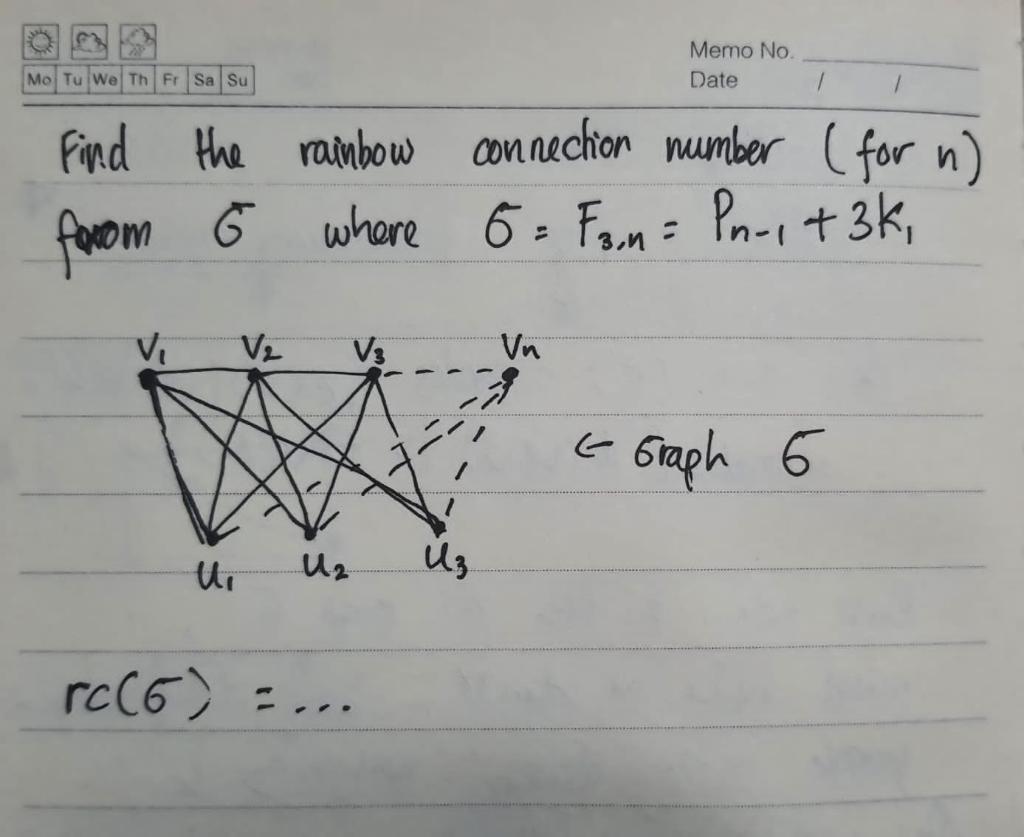 Mo Tu We Th Fr Sa Su
Memo No.
Date / /
Find the rainbow connection number (for n)
from G where G = F₃,ₙ = Pₙ₋₁ + 3K₁
V₁ V₂ V₃ Vₙ
← Graph G
u₁ u₂ u₃
rc(G) = ...